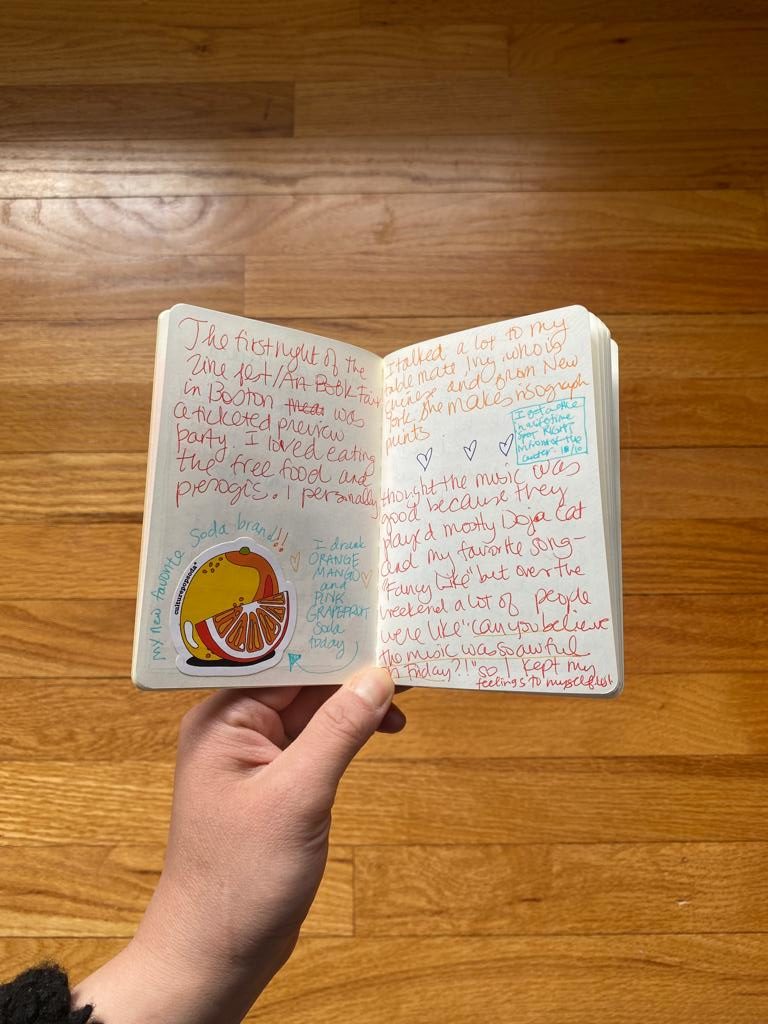 The first night of the
zine fest/Art Book Fair
in Boston was
a ticketed preview
party. I loved eating
the free food and
pierogis. I personally
my new favorite Soda brand!!
culturepopsoda
I drank
ORANGE
MANGO
and
PINK
GRAPEFRUIT
Soda
today
I talked a lot to my
table mate Ivy who is
Chinese and from New
York. She makes risograph
prints
I got a nice
spot RIGHT
in front of the
10/10
thought the music was
good because they
played mostly Doja Cat
and my favorite song-
"Fancy Like" but over the
weekend a lot of people
were like "can you believe
the music was so awful
on Friday?!" so I kept my
feelings to myself